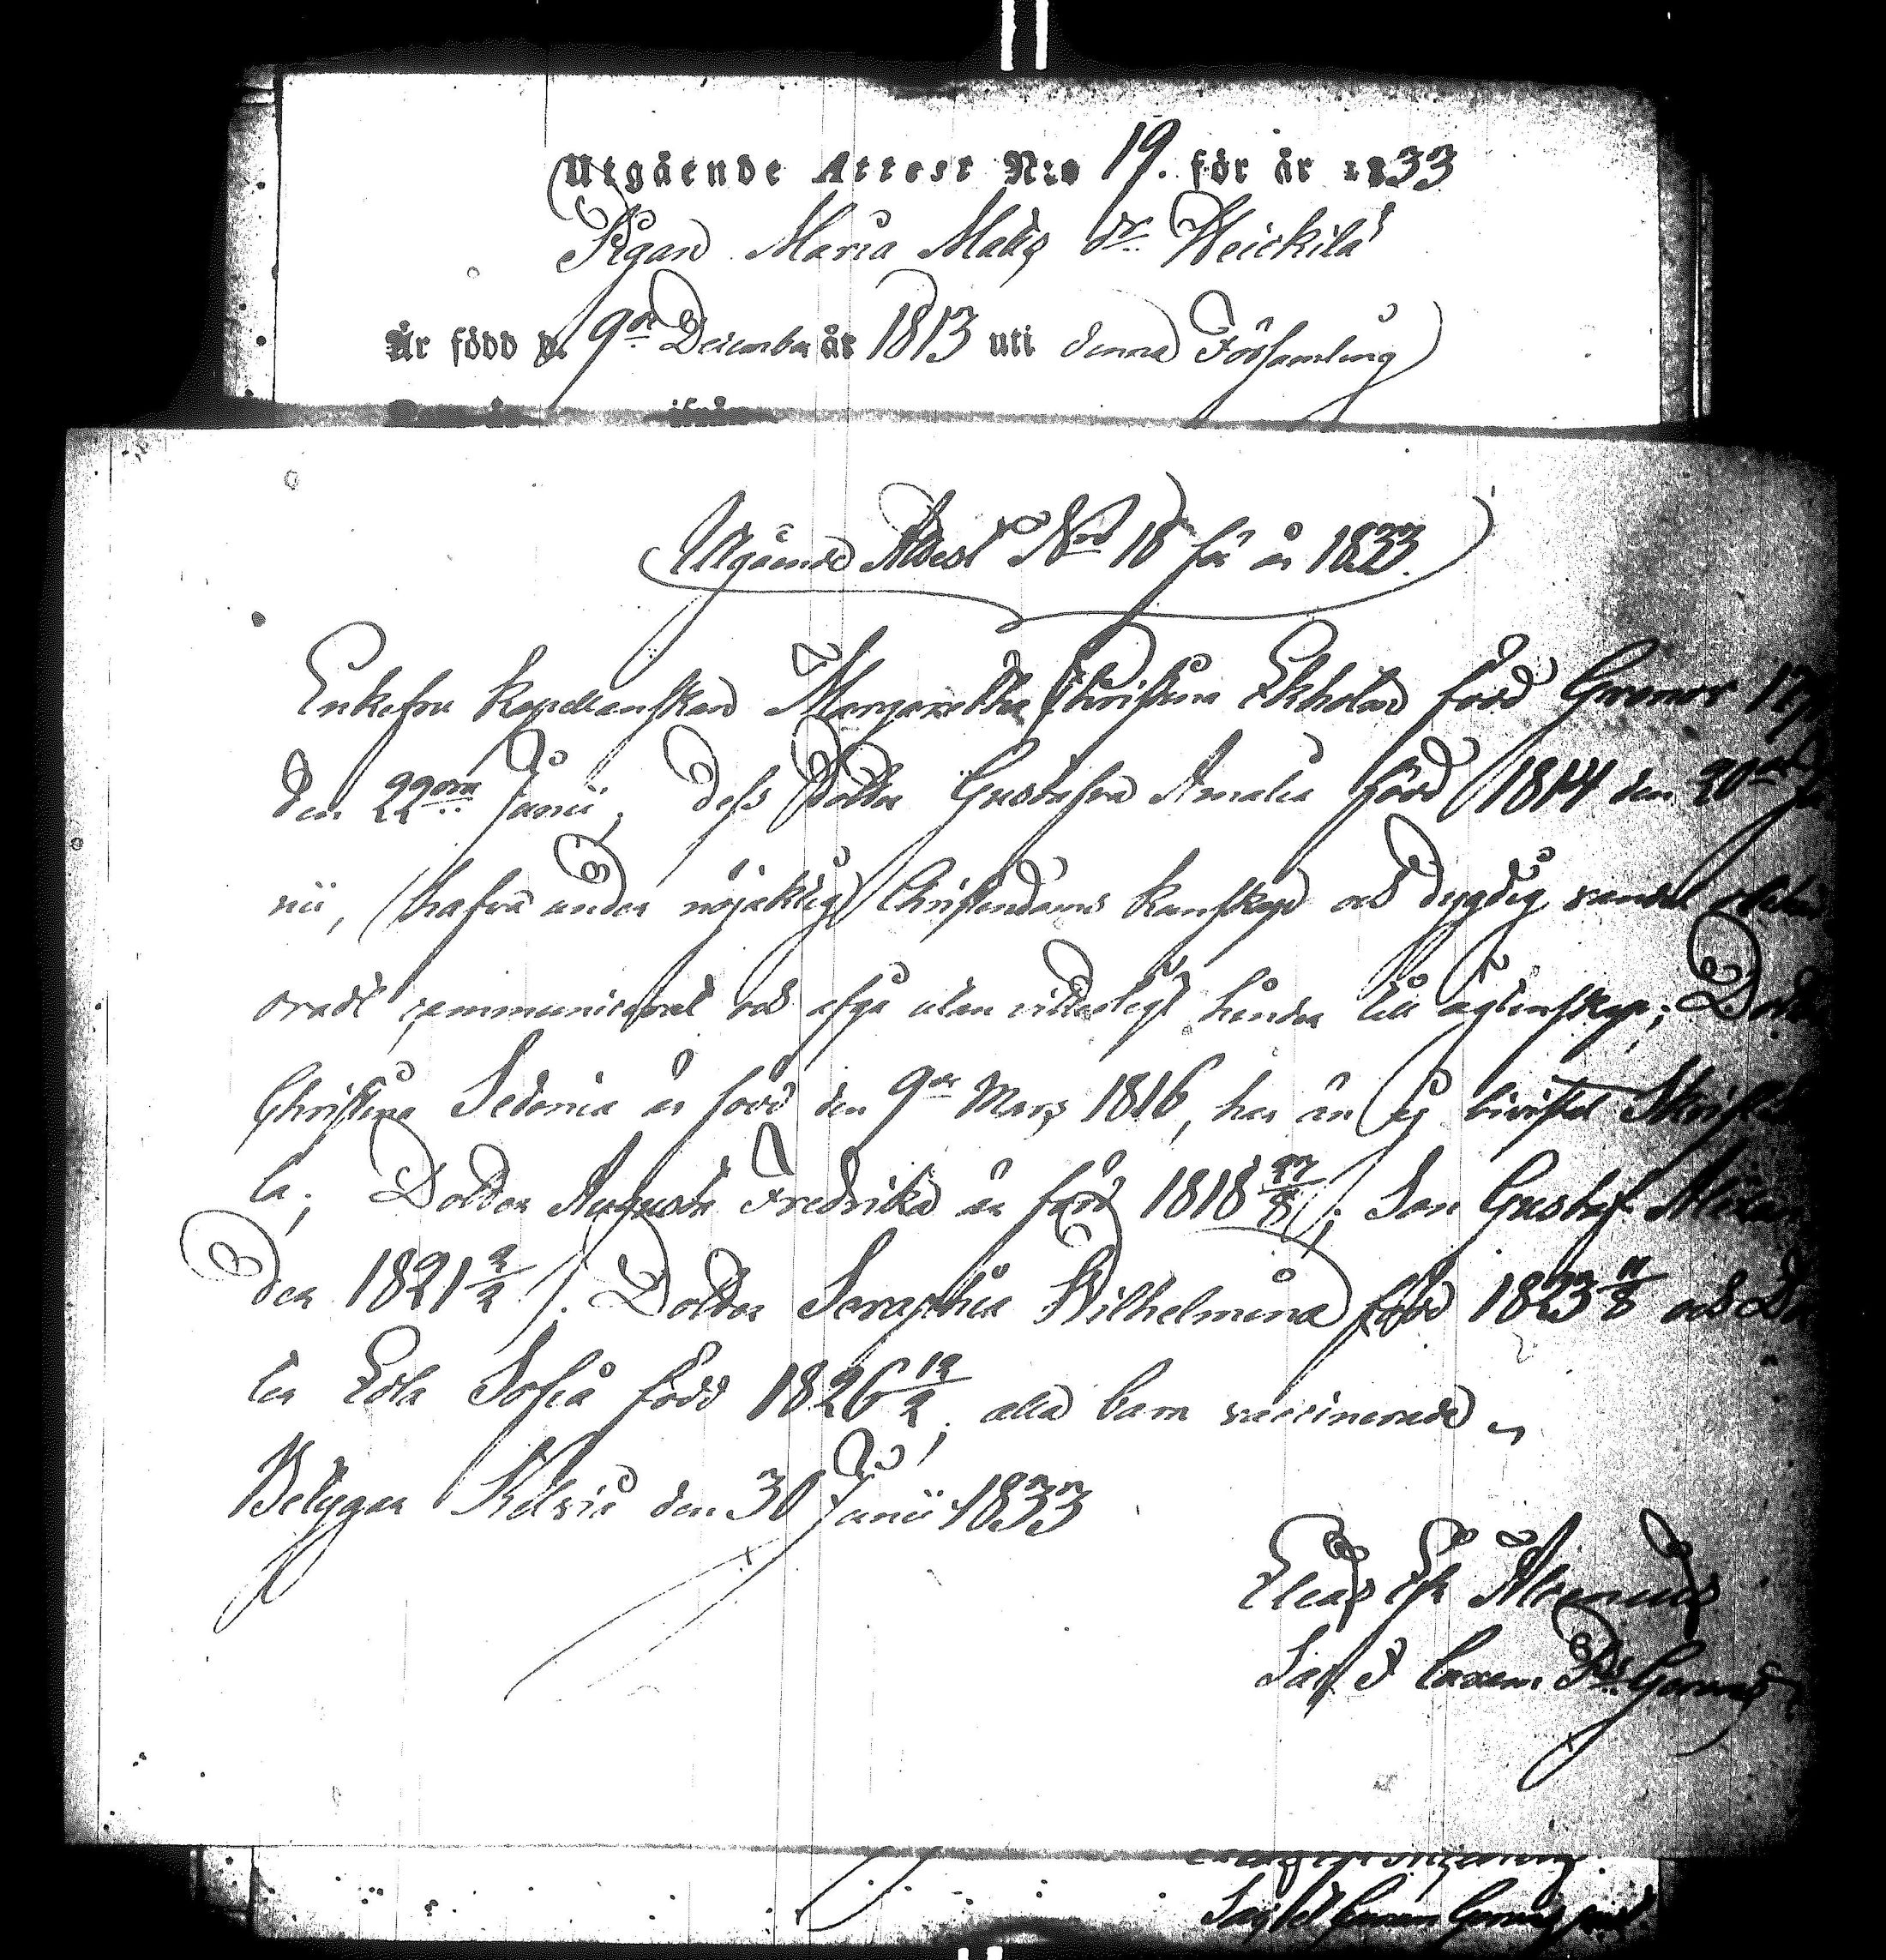 Utgående Attest N:o 19. för år 1833
Pigan Maria Matts dr Heickilä
Är född d. 9de December år 1813 uti denna Församling
Utgående Attest No 18 för år 1833.
Enkefru Kapellanskan Margaretha Christina Ekholm född Granor
den 22dra Junii, dess Dotter Gustafva Amalia född 1814 den 20de Ju
nii, hafva under nöjaktig Christendoms kunskap och dygdig vandel
communicerat och afgå utan vitterligt hinder till ägtenskap; Dotter
Christina Sedonia är född den 9de Mars 1816, har än ej bivistat Skriftsko
la; Dotter Augusta Fredrika är född 1818 27/8; Son Gustaf Alexan
der 1821 2/2; Dotter Seraphia Wilhelmina född 1823 11/8 och Dot
ter Eda Sofia född 1826 12/2; alla barn vaccinerade
Betygar Kelviå den 30 Junii 1833
Elias Ek Alcenius
Sac. & Curam Ps Gerens